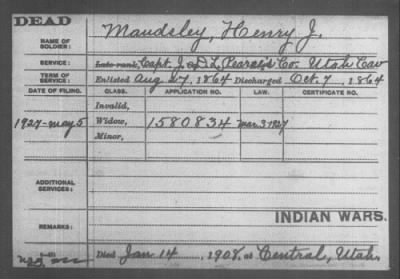 DEAD
NAME OF SOLDIER: Maudsley, Henry J.
SERVICE: Late rank, Capt. J. D. L. Pearce's Co. Utah Cav
TERM OF SERVICE: Enlisted Aug 27, 1864 Discharged Oct. 7, 1864
DATE OF FILING. CLASS. APPLICATION NO. LAW. CERTIFICATE NO.
Invalid,
1927-May 5 Widow, 1580834 Mar 3 1927
Minor,
ADDITIONAL SERVICES:
INDIAN WARS.
REMARKS:
Died Jan 14, 1908, at Central, Utah.